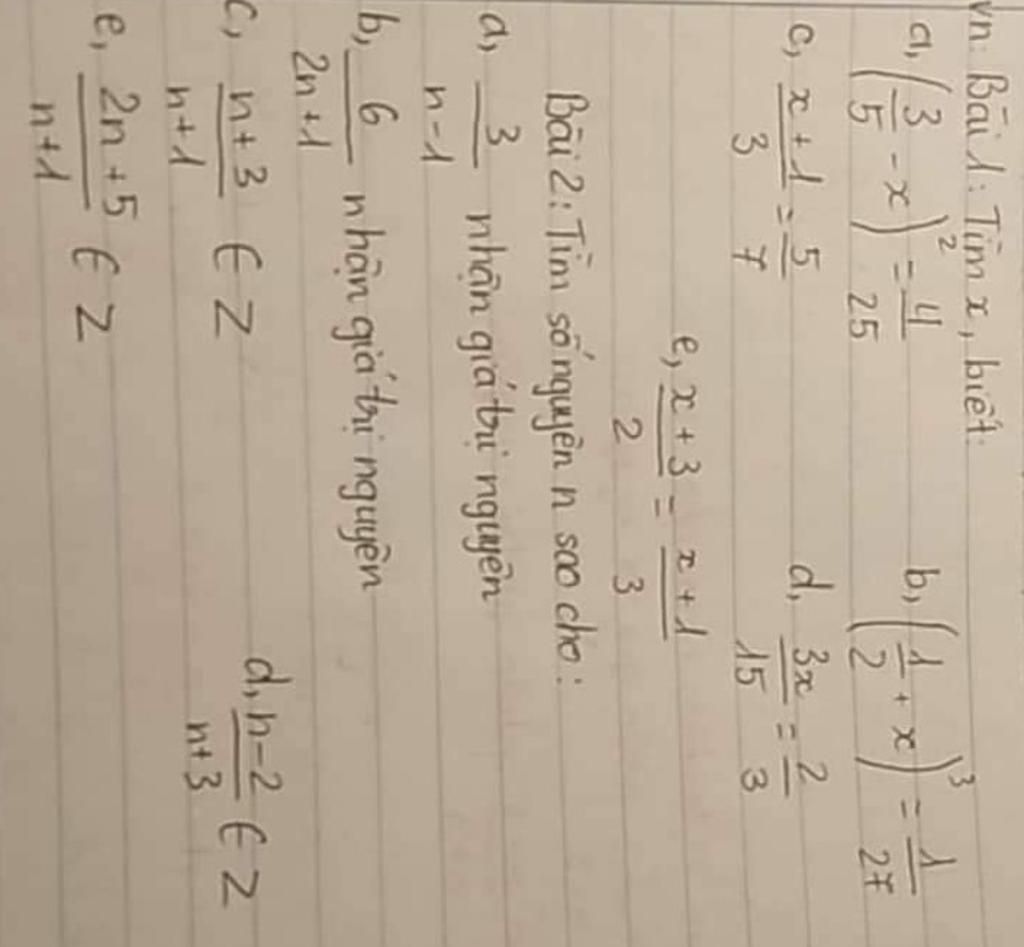 vn: Bài 1: Tìm x, biết:
a, (3/5 - x)² = 4/25 b, (1/2 + x)³ = 1/27
c, x+1/3 = 5/7 d, 3x/15 = 2/3
e, x+3/2 = x+1/3
Bài 2: Tìm số nguyên n sao cho:
a, 3/n-1 nhận giá trị nguyên
b, 6/2n+1 nhận giá trị nguyên
c, n+3/n+1 ∈ Z d, n-2/n+3 ∈ Z
e, 2n+5/n+1 ∈ Z